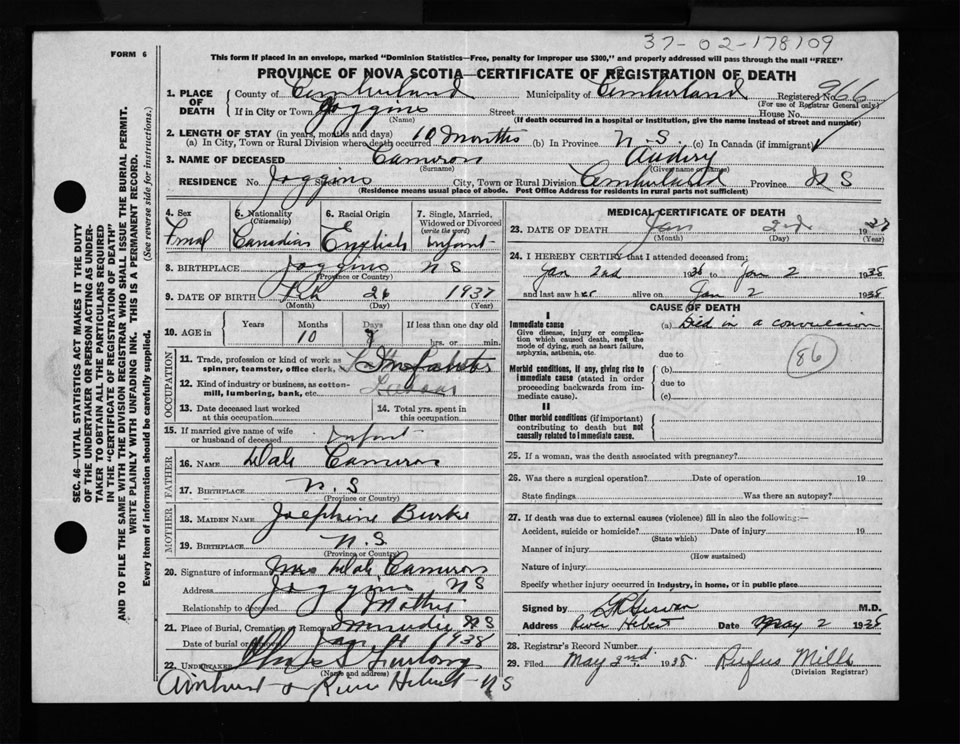 37-02-178109
FORM 6
This form if placed in an envelope, marked "Dominion Statistics—Free, penalty for improper use $300," and properly addressed will pass through the mail "FREE"
PROVINCE OF NOVA SCOTIA—CERTIFICATE OF REGISTRATION OF DEATH
SEC. 46—VITAL STATISTICS ACT MAKES IT THE DUTY
OF THE UNDERTAKER OR PERSON ACTING AS UNDER-
TAKER TO OBTAIN ALL THE PARTICULARS REQUIRED
IN THE "CERTIFICATE OF REGISTRATION OF DEATH"
AND TO FILE THE SAME WITH THE DIVISION REGISTRAR WHO SHALL ISSUE THE BURIAL PERMIT.
WRITE PLAINLY WITH UNFADING INK. THIS IS A PERMANENT RECORD.
Every item of information should be carefully supplied. (See reverse side for instructions.)
1. PLACE OF DEATH County of Cumberland Municipality of Cumberland Registered No. 966
(For use of Registrar General only)
If in City or Town Joggins Street House No.
(Name) (If death occurred in a hospital or institution, give the name instead of street and number)
2. LENGTH OF STAY (in years, months and days)
(a) In City, Town or Rural Division where death occurred 10 Months (b) In Province N.S (c) In Canada (if immigrant)
3. NAME OF DECEASED Cameron Audery
(Surname) (Given name or names)
RESIDENCE No. Joggins Street City, Town or Rural Division Cumberland Province N S
(Residence means usual place of abode. Post Office Address for residents in rural parts not sufficient)
4. Sex 5. Nationality (Citizenship) 6. Racial Origin 7. Single, Married, Widowed or Divorced (write the word)
Canadian English Infant
8. BIRTHPLACE Joggins N S
(Province or Country)
9. DATE OF BIRTH Feb 26 1937
(Month) (Day) (Year)
10. AGE in Years Months Days If less than one day old
10 hrs. or min.
OCCUPATION
11. Trade, profession or kind of work as
spinner, teamster, office clerk, etc.
12. Kind of industry or business, as cotton-
mill, lumbering, bank, etc.
13. Date deceased last worked
at this occupation
14. Total yrs. spent in
this occupation
15. If married give name of wife
or husband of deceased Infant
FATHER
16. NAME Dale Cameron
17. BIRTHPLACE N.S
(Province or Country)
MOTHER
18. MAIDEN NAME Josephine Burke
19. BIRTHPLACE N.S
(Province or Country)
20. Signature of informant Mrs Dale Cameron
Address Joggins N S
Relationship to deceased Mother
21. Place of Burial, Cremation or Removal Minudie N S
Date of burial or removal 1938
22. UNDERTAKER Furlong
(Name and address)
Amherst & River Hebert N S
MEDICAL CERTIFICATE OF DEATH
23. DATE OF DEATH Jan 2nd 19
(Month) (Day) (Year)
24. I HEREBY CERTIFY that I attended deceased from:
Jan 2nd 19 to Jan 2 1938
and last saw her alive on Jan 2 1938
CAUSE OF DEATH
I
Immediate cause (a) Died in a convulsion
Give disease, injury or complica-
tion which caused death, not the
mode of dying, such as heart failure,
asphyxia, asthenia, etc.
due to
86
Morbid conditions, if any, giving rise to
immediate cause (stated in order
proceeding backwards from im-
mediate cause).
(b)
due to
(c)
II
Other morbid conditions (if important)
contributing to death but not
causally related to immediate cause.
25. If a woman, was the death associated with pregnancy?
26. Was there a surgical operation? Date of operation 19
State findings Was there an autopsy?
27. If death was due to external causes (violence) fill in also the following:—
Accident, suicide or homicide? Date of injury 19
(State which)
Manner of injury
(How sustained)
Nature of injury
Specify whether injury occurred in industry, in home, or in public place
Signed by M.D.
Address River Hebert Date May 2 1938
28. Registrar's Record Number
29. Filed May 2nd 1938 Rufus Mills
(Division Registrar)